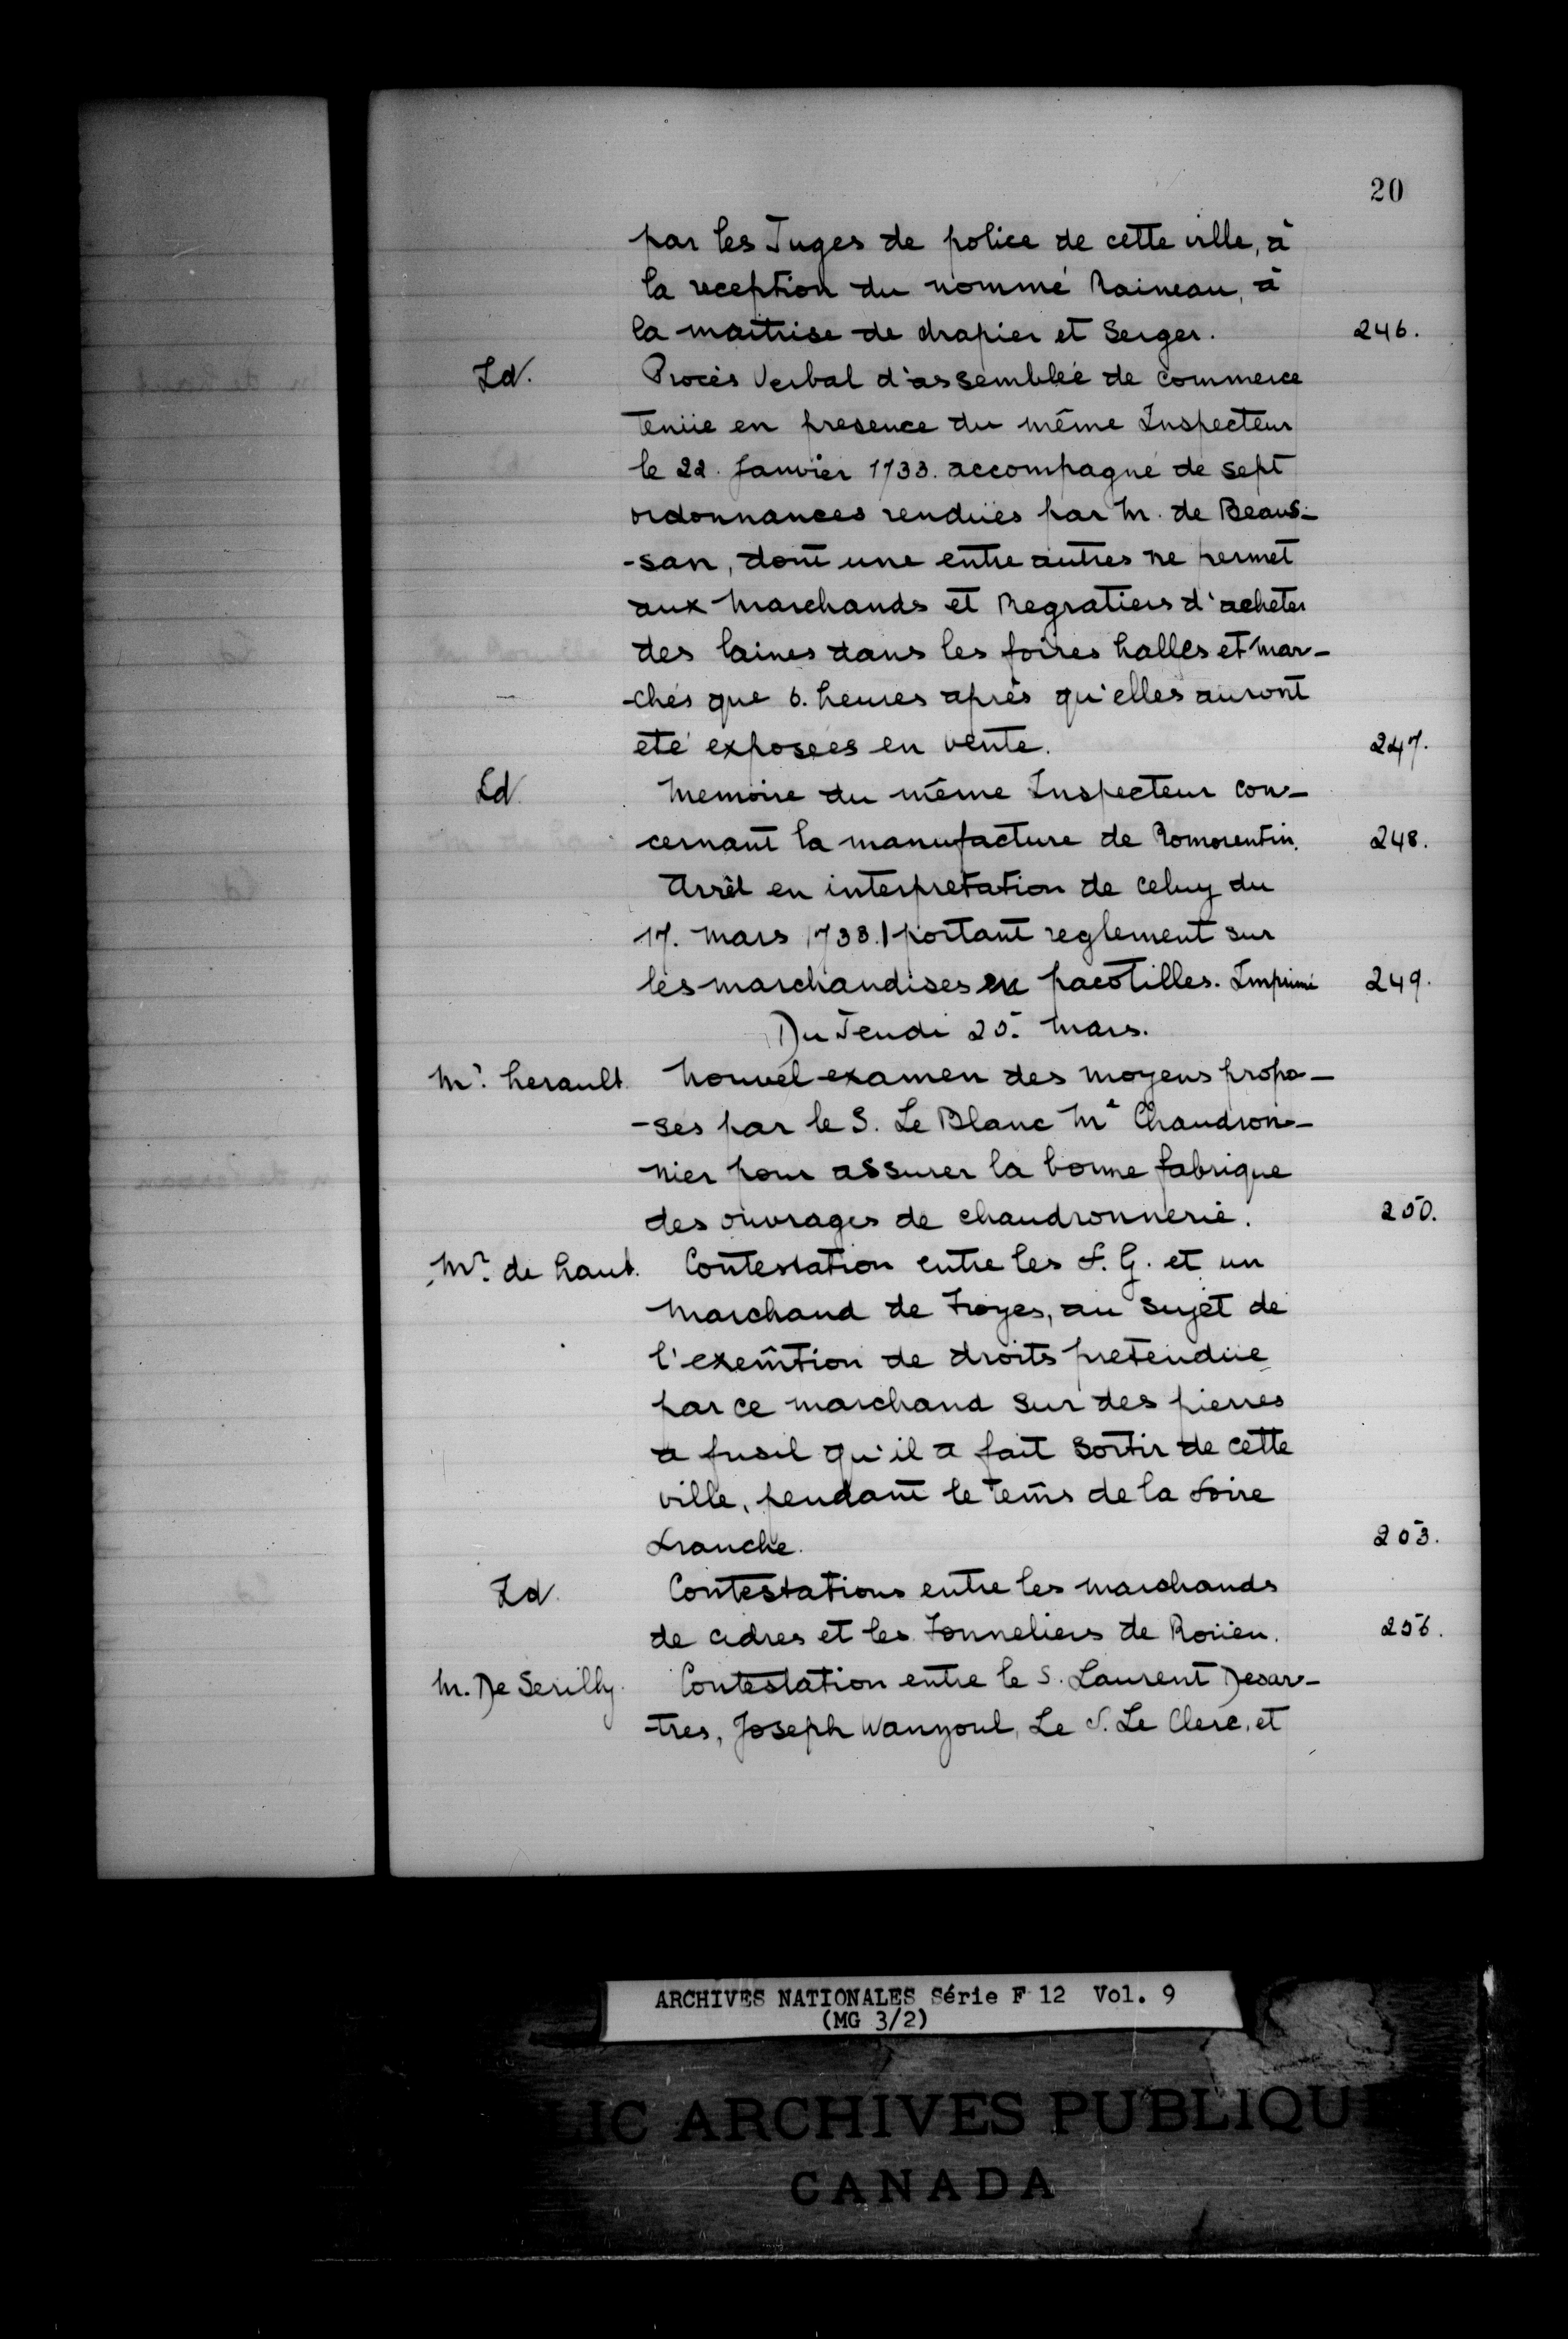 20
par les Juges de police de cette ville, à
la reception du nommé Raineau, à
la maitrise de drapier et Serger. 246.
Id. Procès Verbal d'assemblée de commerce
tenüe en presence du même Inspecteur
le 22. Janvier 1733. accompagné de sept
ordonnances rendües par M. de Beaus-
-san, dont une entre autres ne permet
aux Marchands et Regratiers d'acheter
des laines dans les foires halles et mar-
-chés que 6. heures après qu'elles auront
eté exposées en vente. 247.
Id. Memoire du même Inspecteur con-
cernant la manufacture de Romorentin. 248.
Arrêt en interpretation de celuy du
17. Mars 1733. portant reglement sur
les marchandises en pacotilles. Imprimé 249.
Du Jeudi 25. Mars.
Mr. herault. Nouvel examen des moyens propo-
-ses par le S. Le Blanc Me Chaudron-
nier pour assurer la bonne fabrique
des ouvrages de chaudronnerie. 250.
Mr. de haut. Contestation entre les f. G. et un
Marchand de Troyes, au sujet de
l'exem̃tion de droits pretendüe
par ce marchand sur des pierres
a fusil qu'il a fait sortir de cette
ville, pendant le tem̃s de la foire
franche. 253.
Id. Contestations entre les marchands
de cidres et les Tonneliers de Roüen. 256.
M. De Serilly. Contestation entre le S. Laurent Desar-
-tres, Joseph Wanyoul, Le S. Le Clerc, et
ARCHIVES NATIONALES Série F 12 Vol. 9
(MG 3/2)
LIC ARCHIVES PUBLIQUE
CANADA